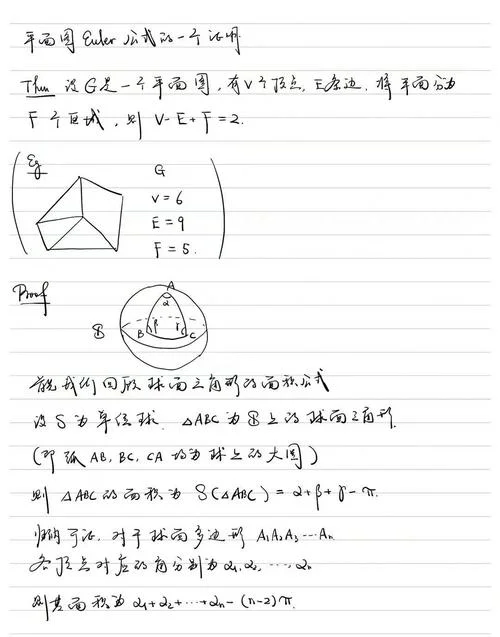 平面图 Euler 公式的一个证明
Thm 设G是一个平面图,有V个顶点,E条边,将平面分为
F个区域,则 V-E+F=2.
Eg
G
V=6
E=9
F=5.
Proof
A
α
S B β γ C
首先我们回顾球面三角形的面积公式
设S为单位球. △ABC为S上的球面三角形.
(即弧AB,BC,CA均为球上的大圆)
则△ABC的面积为 S(△ABC)=α+β+γ-π.
归纳可证,对于球面多边形 A₁A₂A₃…Aₙ
各顶点对应的角分别为α₁,α₂,…,αₙ
则其面积为α₁+α₂+…+αₙ-(n-2)π.